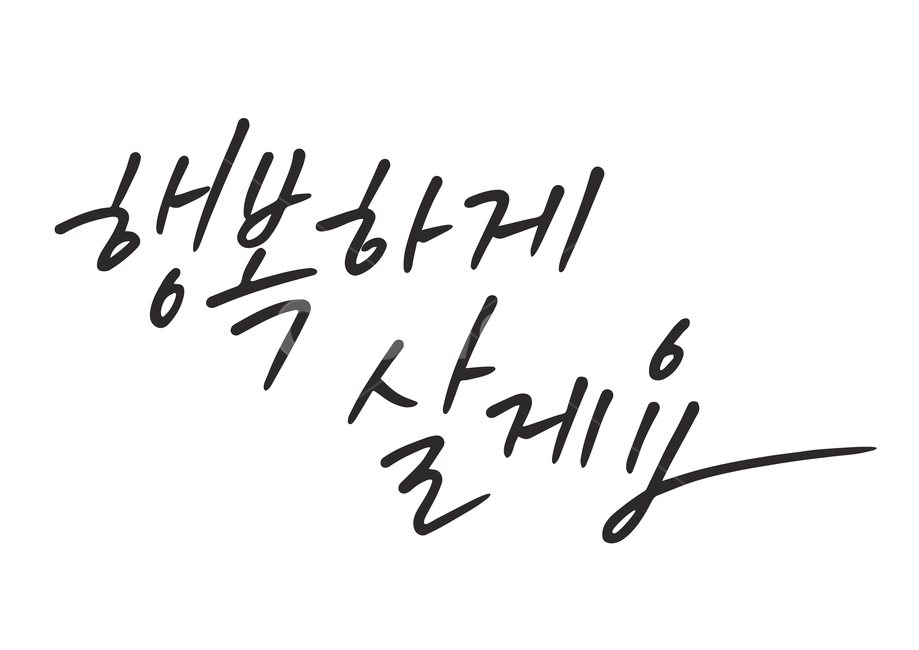 행복하게
살게요